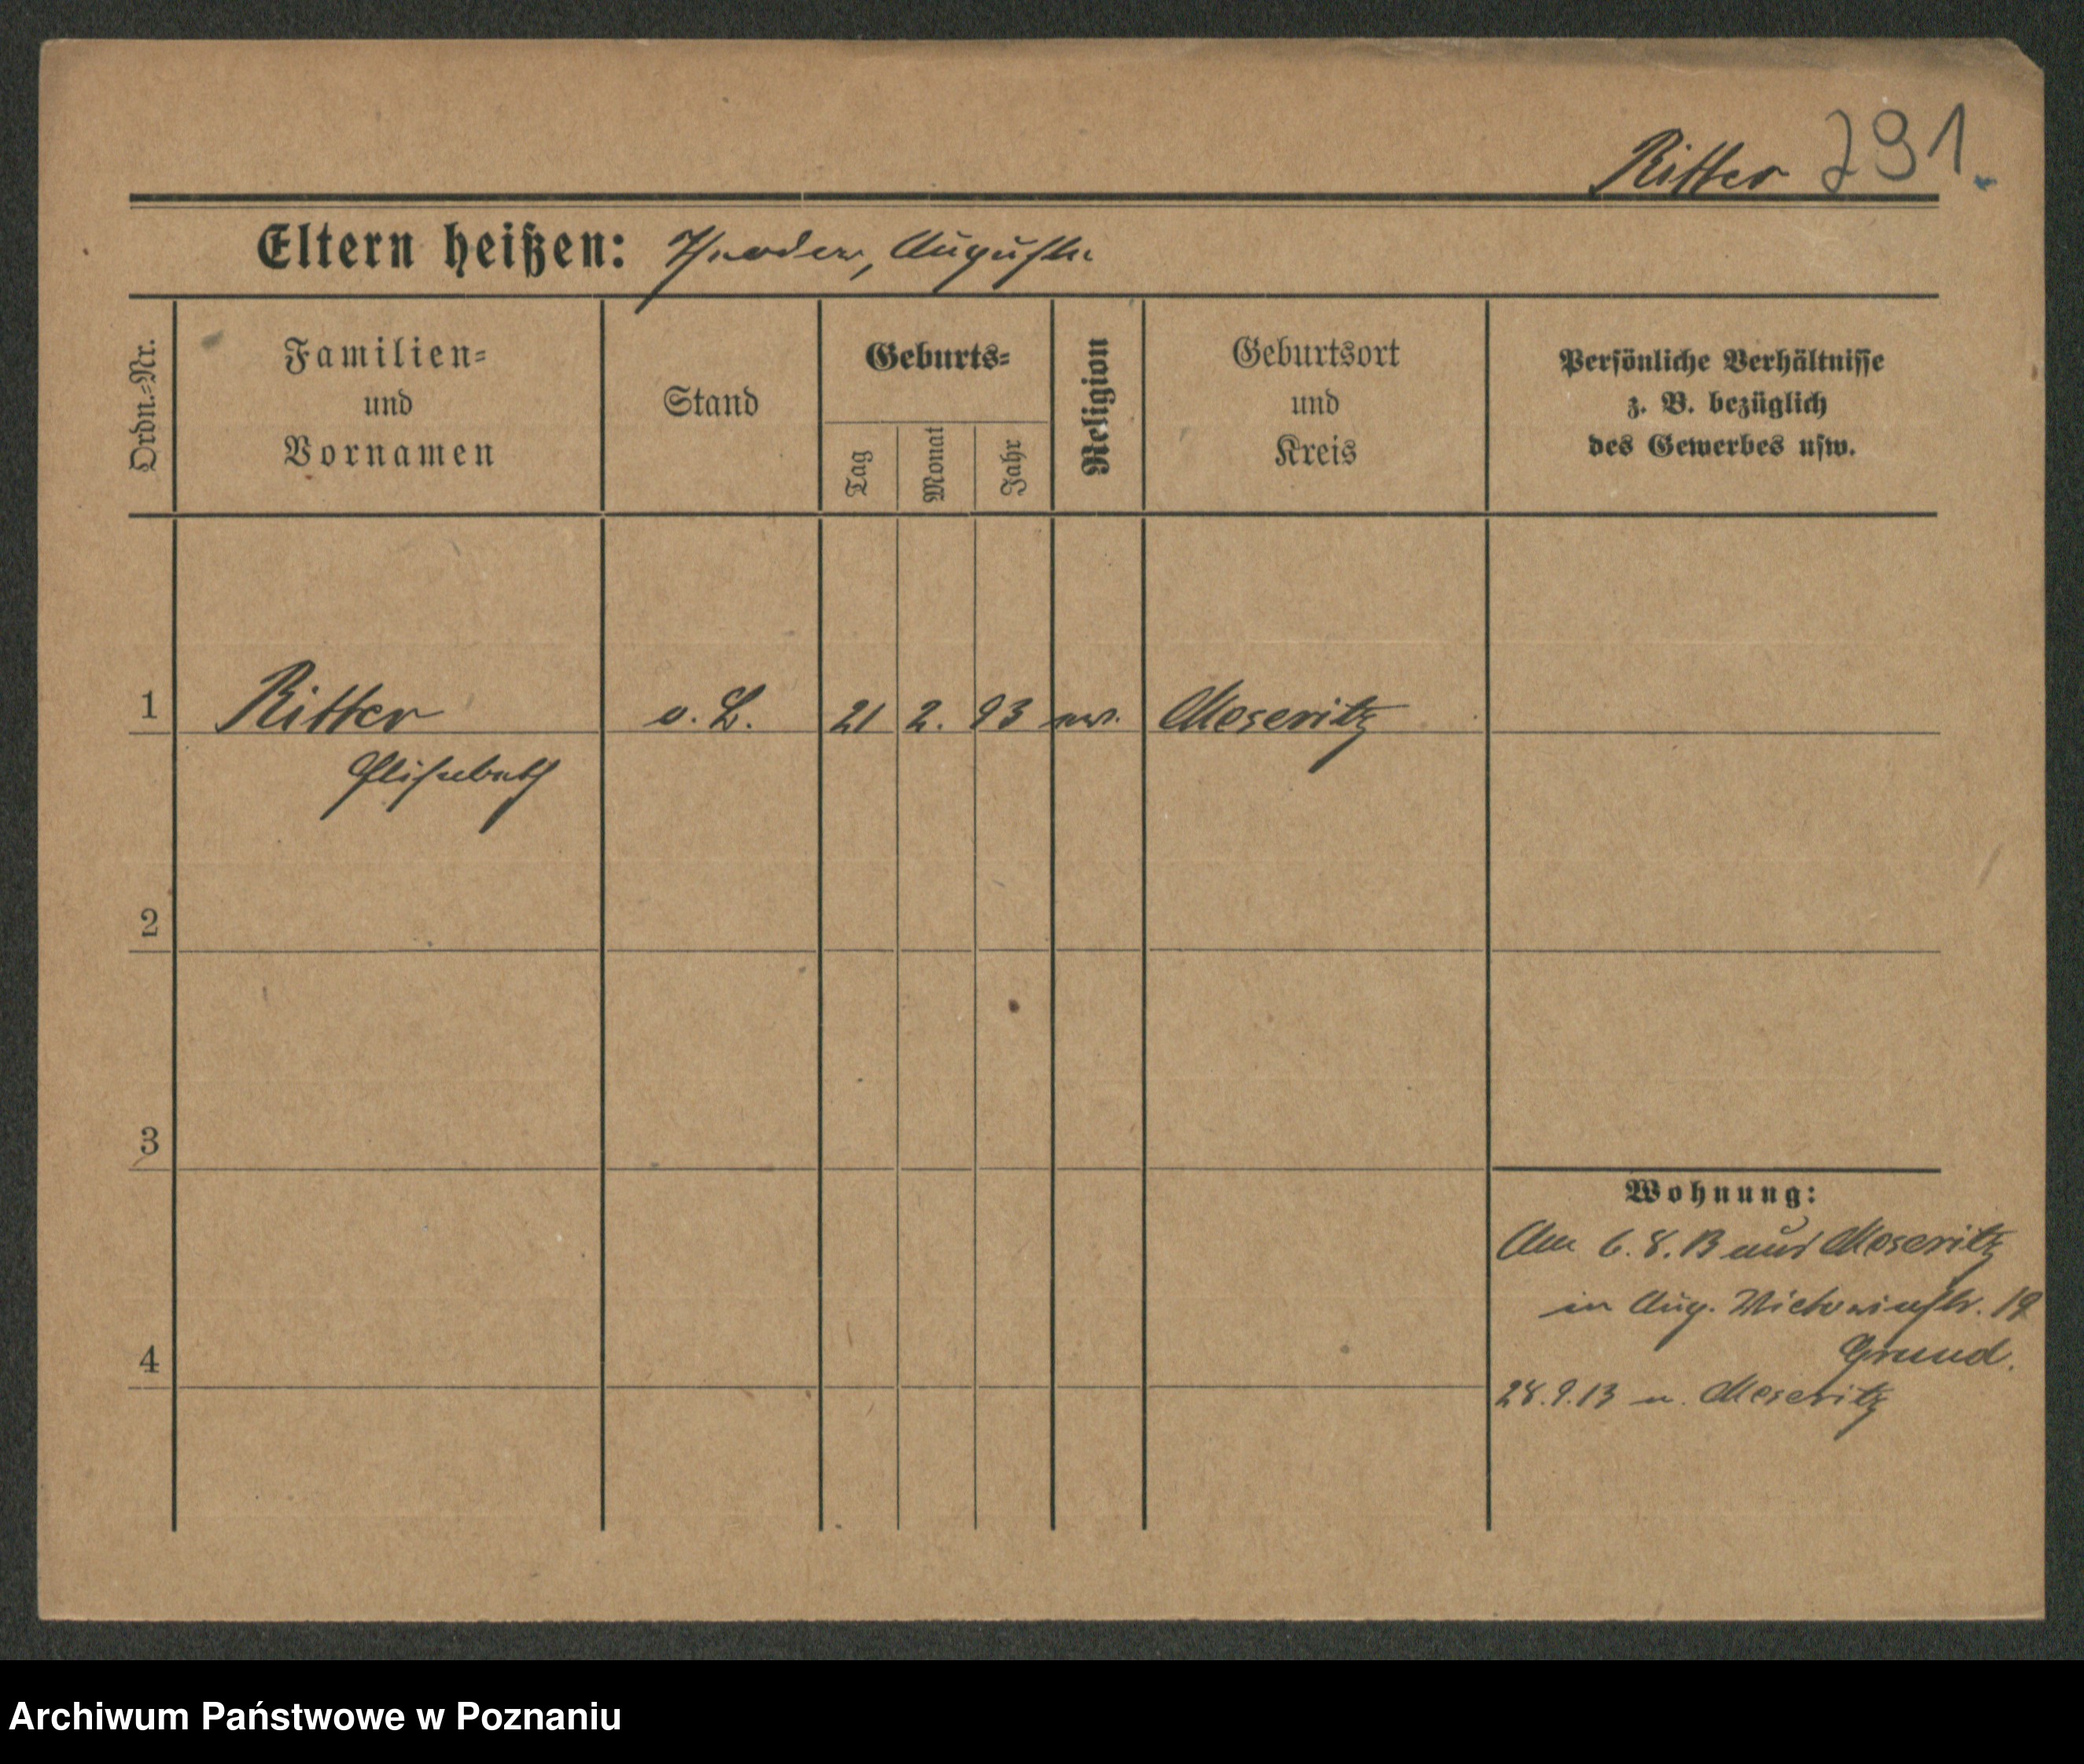 Ritter 291.
Eltern heißen: Theodor, Auguste
Ordn.-Nr.
Familien-
und
Vornamen
Stand
Geburts-
Tag
Monat
Jahr
Religion
Geburtsort
und
Kreis
Persönliche Verhältnisse
z. B. bezüglich
des Gewerbes usw.
1 Ritter o. B. 21 2. 93 ev. Meseritz
Elisabeth
2
3
4
Wohnung:
Am 6.8.13 aus Meseritz
in Aug. Victoriastr. 19
Grund.
28.9.13 n. Meseritz
Archiwum Państwowe w Poznaniu